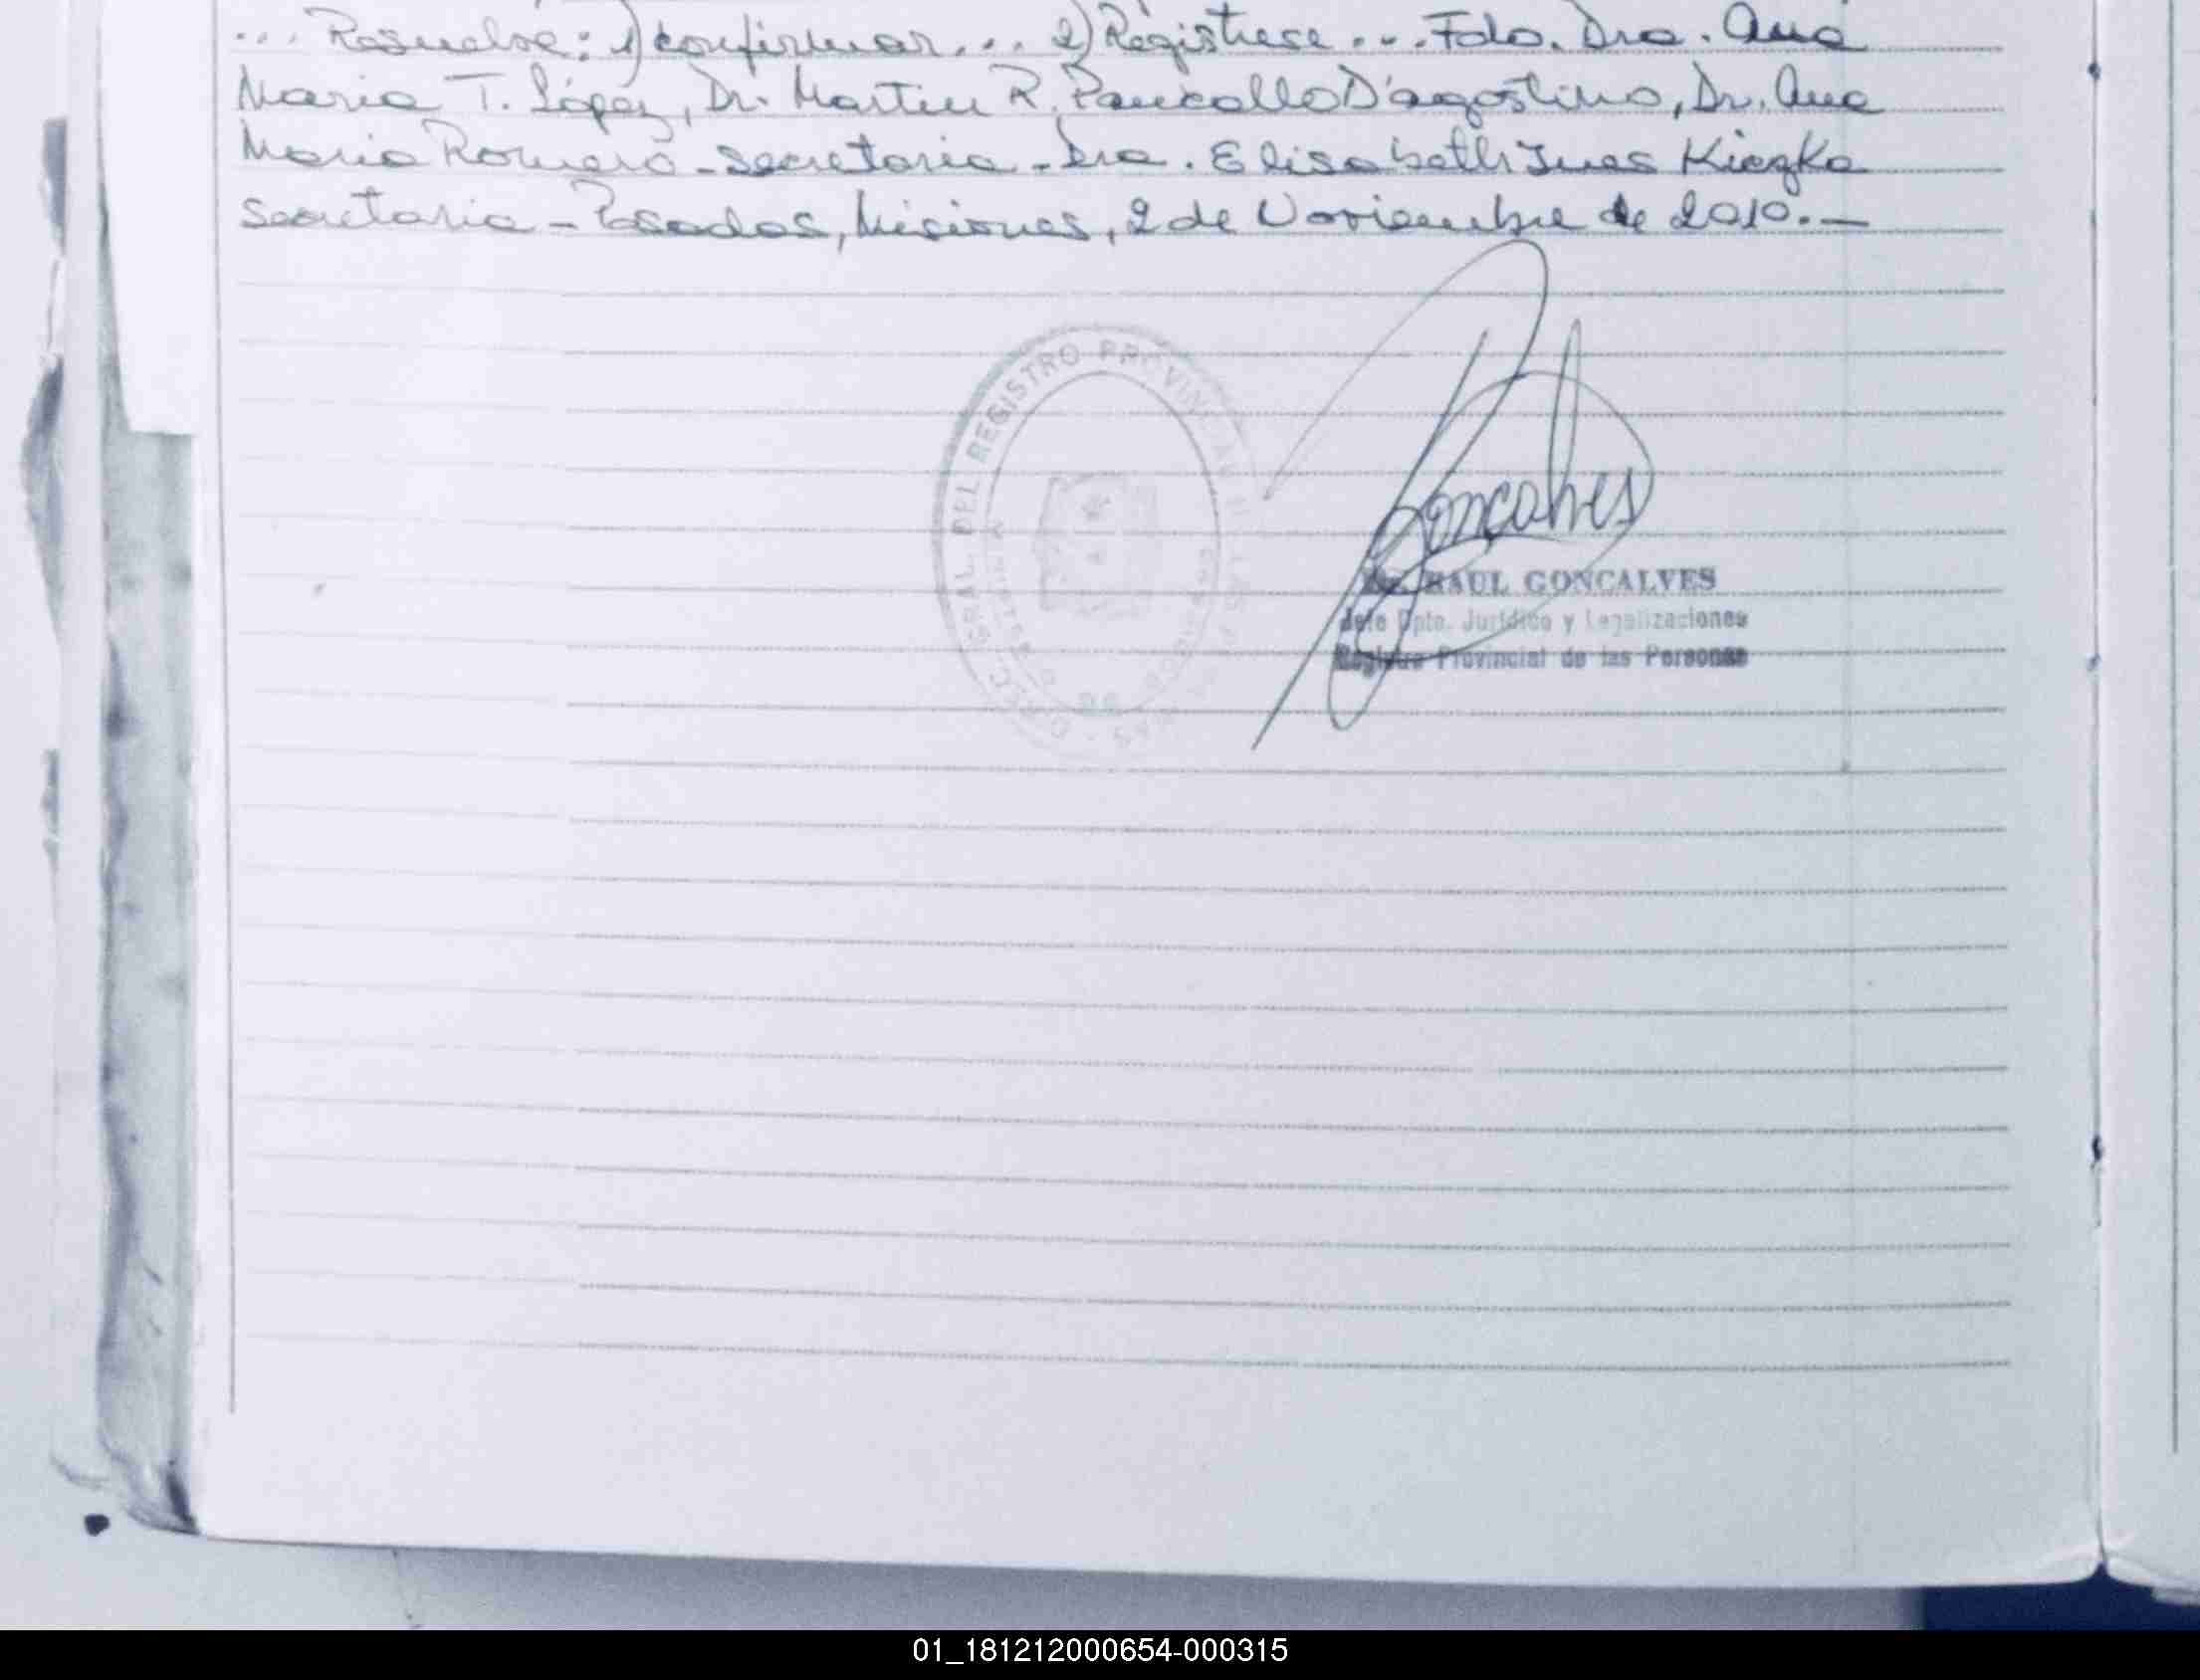 ... Resuelve: 1) confirmar... 2) Registrese... Fdo. Dra. Ana
Maria T. López, Dr. Martin R. D'agostino, Dr. Ana
Maria Romero - Secretaria - Dra. Elisabeth Ines Kiezka
Secretaria - Posadas, Misiones, 2 de Noviembre de 2010.-
DEL REGISTRO PROVINCIAL
Goncalves
RAUL GONCALVES
Jefe Dpto. Jurídico y Legalizaciones
Registro Provincial de las Personas
01_181212000654-000315